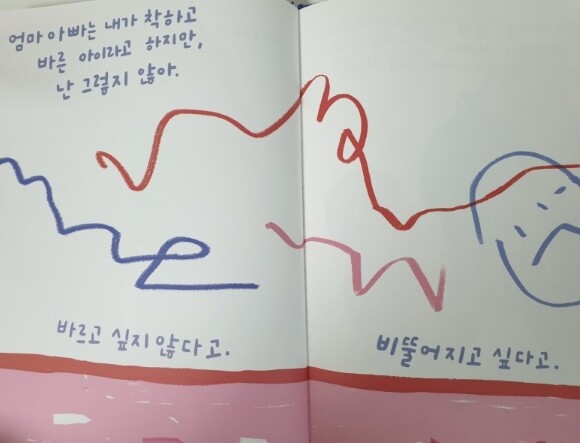 엄마 아빠는 내가 착하고
바른 아이라고 하지만,
난 그렇지 않아.
바르고 싶지 않다고.
비뚤어지고 싶다고.